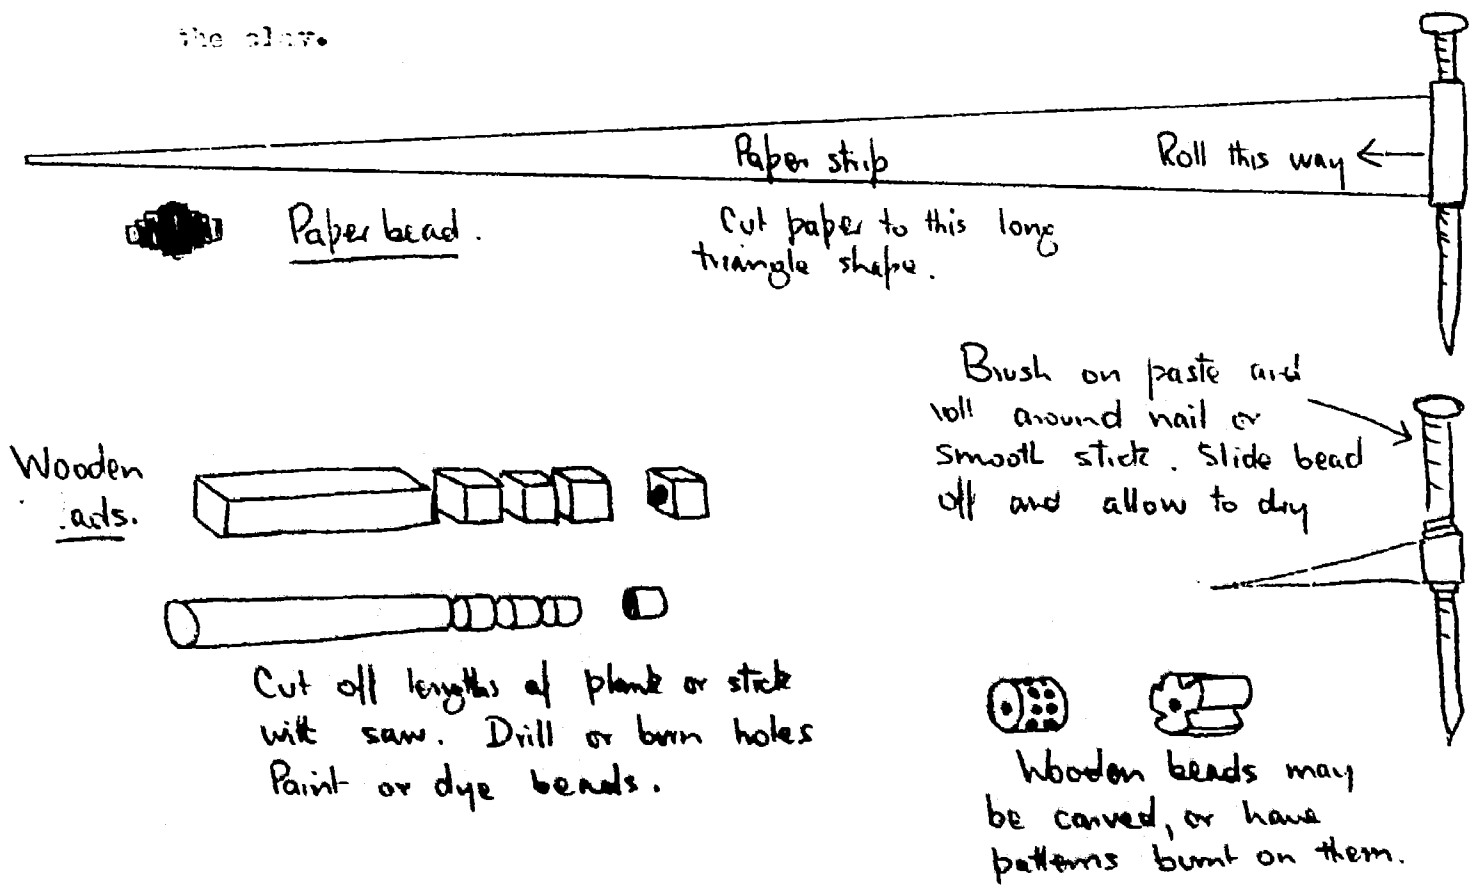 the clay.
Paper strip
Roll this way
Paper bead.
Cut paper to this long
triangle shape.
Brush on paste and
roll around nail or
smooth stick. Slide bead
off and allow to dry
Wooden
Cut off lengths of plank or stick
with saw. Drill or burn holes
Paint or dye beads.
Wooden beads may
be carved, or have
patterns burnt on them.